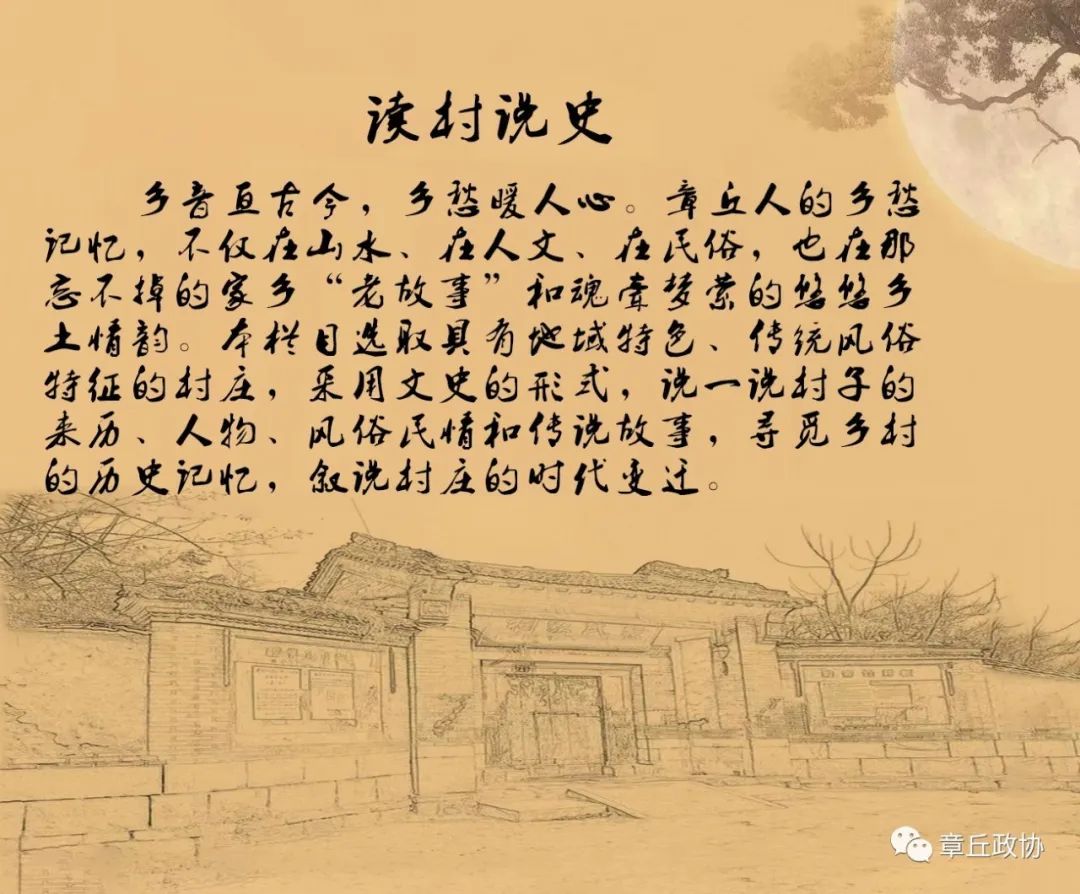 读村说史
乡音亘古今，乡愁暖人心。章丘人的乡愁
记忆，不仅在山水、在人文、在民俗，也在那
忘不掉的家乡“老故事”和魂牵梦萦的悠悠乡
土情韵。本栏目选取具有地域特色、传统风俗
特征的村庄，采用文史的形式，说一说村子的
来历、人物、风俗民情和传说故事，寻觅乡村
的历史记忆，叙说村庄的时代变迁。
章丘政协